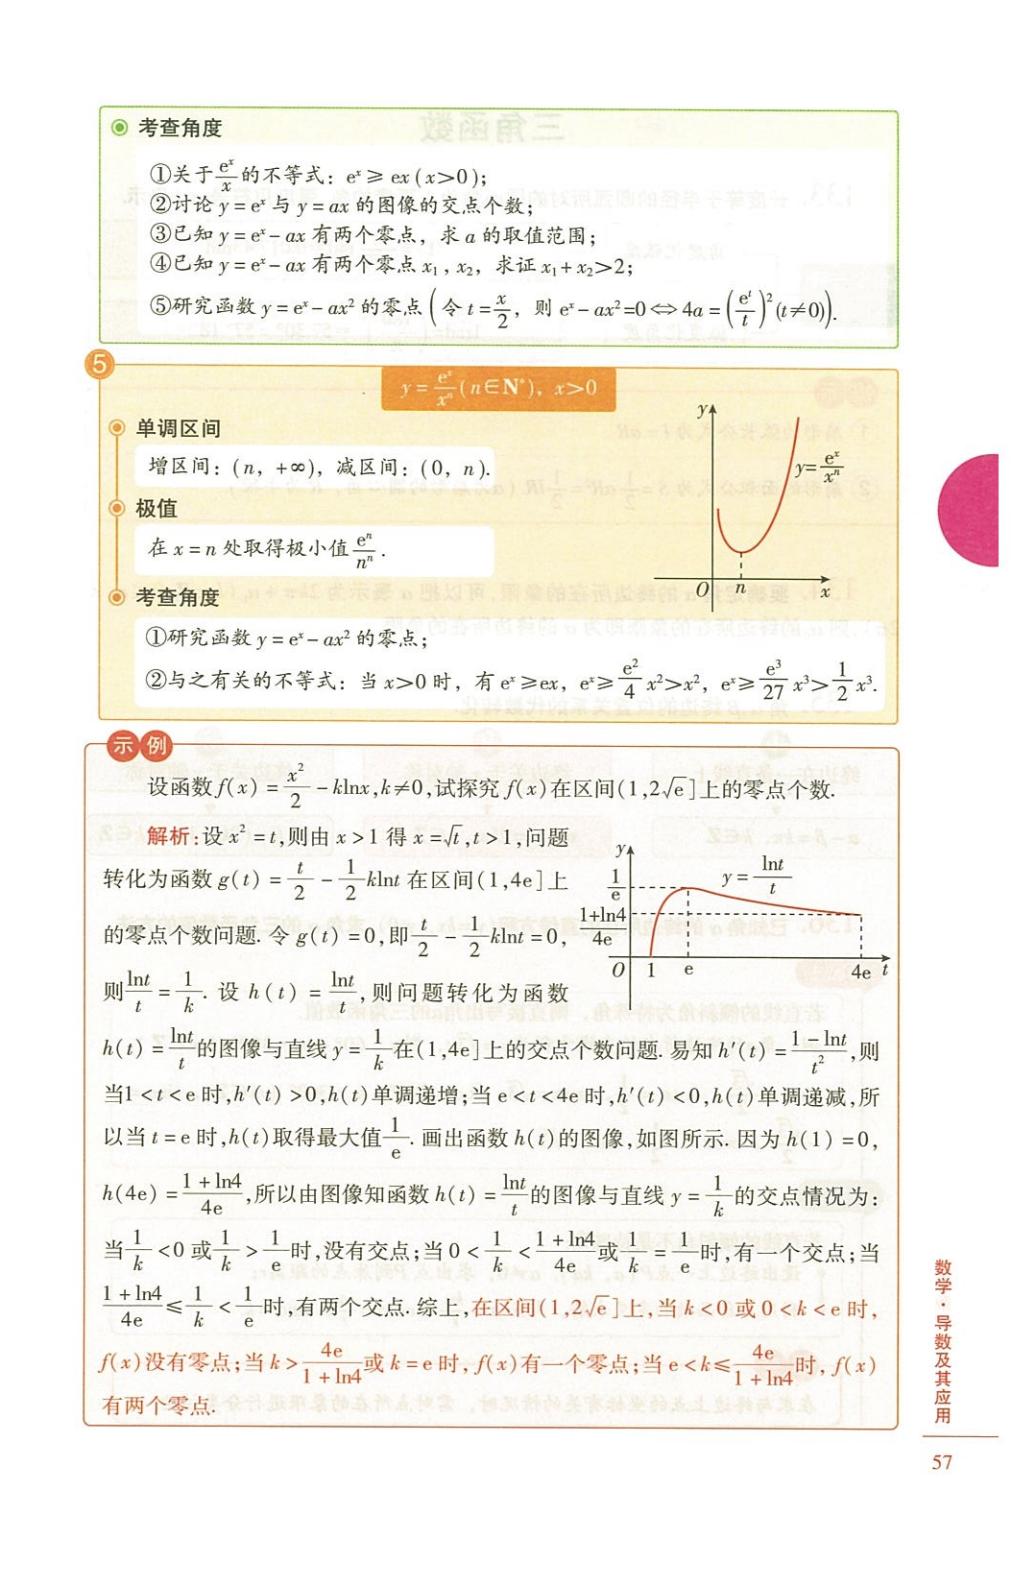 考查角度
①关于e^x/x的不等式：e^x≥ex(x>0)；
②讨论y=e^x与y=ax的图像的交点个数；
③已知y=e^x-ax有两个零点，求a的取值范围；
④已知y=e^x-ax有两个零点x₁，x₂，求证x₁+x₂>2；
⑤研究函数y=e^x-ax²的零点(令t=x/2，则e^x-ax²=0⇔4a=(e^t/t)²(t≠0)).
5
y=e^x/x^n(n∈N*)，x>0
单调区间
增区间：(n，+∞)，减区间：(0，n).
极值
在x=n处取得极小值e^n/n^n.
y
y=e^x/x^n
O n x
考查角度
①研究函数y=e^x-ax²的零点；
②与之有关的不等式：当x>0时，有e^x≥ex，e^x≥e²/4 x²>x²，e^x≥e³/27 x³>1/2 x³.
示例
设函数f(x)=x²/2-klnx,k≠0,试探究f(x)在区间(1,2√e]上的零点个数.
解析:设x²=t,则由x>1得x=√t,t>1,问题
转化为函数g(t)=t/2-1/2klnt在区间(1,4e]上
的零点个数问题.令g(t)=0,即t/2-1/2klnt=0,
则lnt/t=1/k.设h(t)=lnt/t,则问题转化为函数
y
1/e
y=lnt/t
1+ln4/4e
O 1 e 4e t
h(t)=lnt/t的图像与直线y=1/k在(1,4e]上的交点个数问题.易知h′(t)=1-lnt/t²,则
当1<t<e时,h′(t)>0,h(t)单调递增;当e<t<4e时,h′(t)<0,h(t)单调递减,所
以当t=e时,h(t)取得最大值1/e.画出函数h(t)的图像,如图所示.因为h(1)=0,
h(4e)=1+ln4/4e,所以由图像知函数h(t)=lnt/t的图像与直线y=1/k的交点情况为:
当1/k<0或1/k>1/e时,没有交点;当0<1/k<1+ln4/4e或1/k=1/e时,有一个交点;当
1+ln4/4e≤1/k<1/e时,有两个交点.综上,在区间(1,2√e]上,当k<0或0<k<e时,
f(x)没有零点;当k>4e/1+ln4或k=e时,f(x)有一个零点;当e<k≤4e/1+ln4时,f(x)
有两个零点.
数学·导数及其应用
57